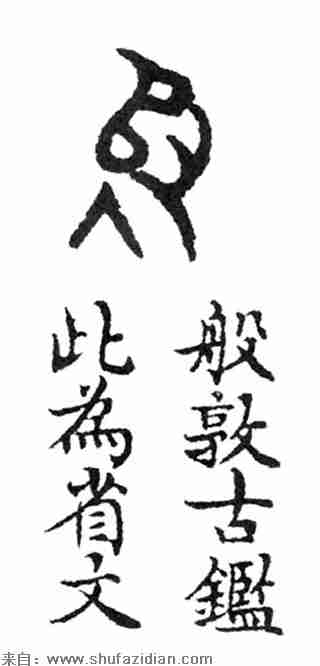 般敦古鑑
此為省文
来自：www.shufazidian.com